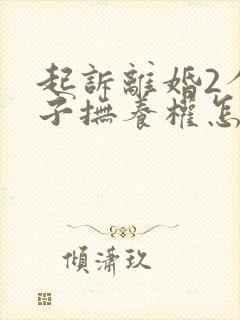 起訴離婚2
子撫養權怎
傾瀟玖